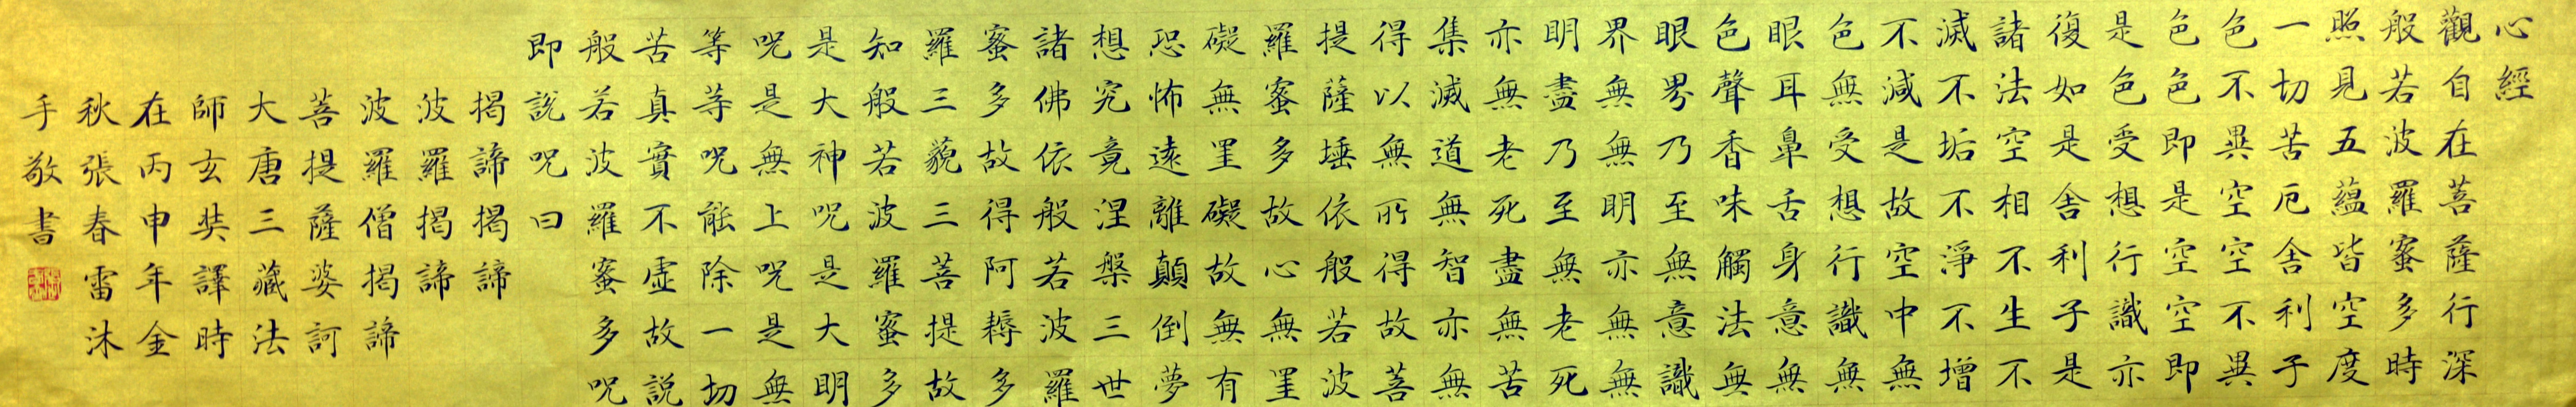 心經
觀自在菩薩行深
般若波羅蜜多時
照見五蘊皆空度
一切苦厄舍利子
色不異空空不異
色色即是空空即
是色受想行識亦
復如是舍利子是
諸法空相不生不
滅不垢不淨不增
不減是故空中無
色無受想行識無
眼耳鼻舌身意無
色聲香味觸法無
眼界乃至無意識
界無無明亦無無
明盡乃至無老死
亦無老死盡無苦
集滅道無智亦無
得以無所得故菩
提薩埵依般若波
羅蜜多故心無罣
礙無罣礙故無有
恐怖遠離顛倒夢
想究竟涅槃三世
諸佛依般若波羅
蜜多故得阿耨多
羅三藐三菩提故
知般若波羅蜜多
是大神呪是大明
呪是無上呪是無
等等呪能除一切
苦真實不虛故説
般若波羅蜜多呪
即説呪曰
揭諦揭諦
波羅揭諦
波羅僧揭諦
菩提薩婆訶
大唐三藏法
師玄奘譯時
在丙申年金
秋張春雷沐
手敬書